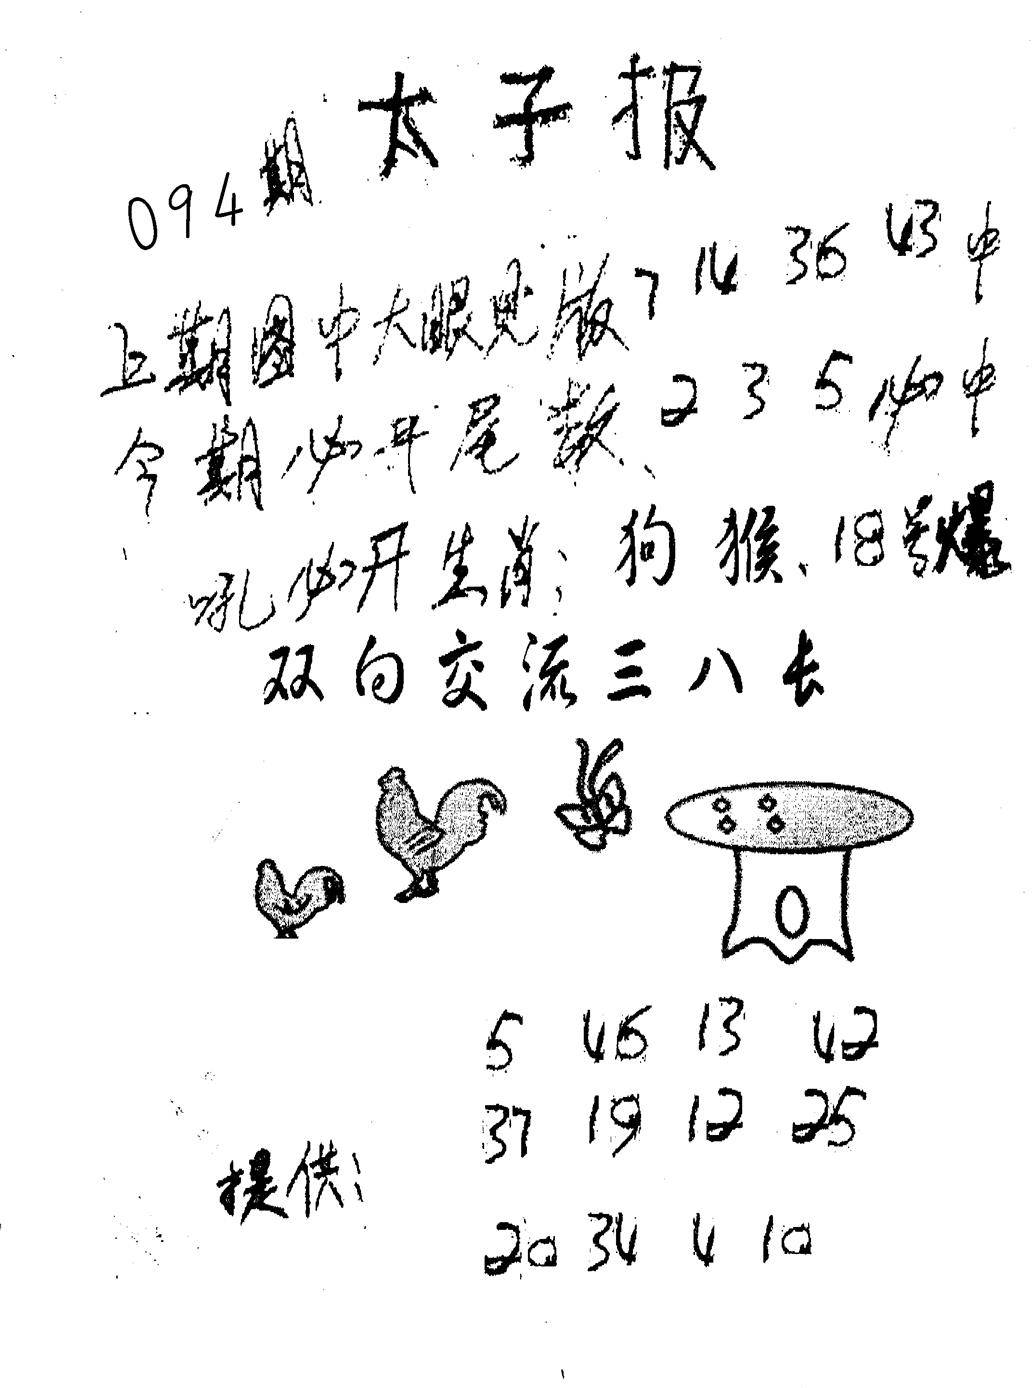 太子报
094期
上期图中大眼见版7 14 36 43中
今期必开尾数、2 3 5必中
吼必开生肖：狗猴、18号爆
双向交流三八长
5 46 13 42
37 19 12 25
提供：
20 34 4 10